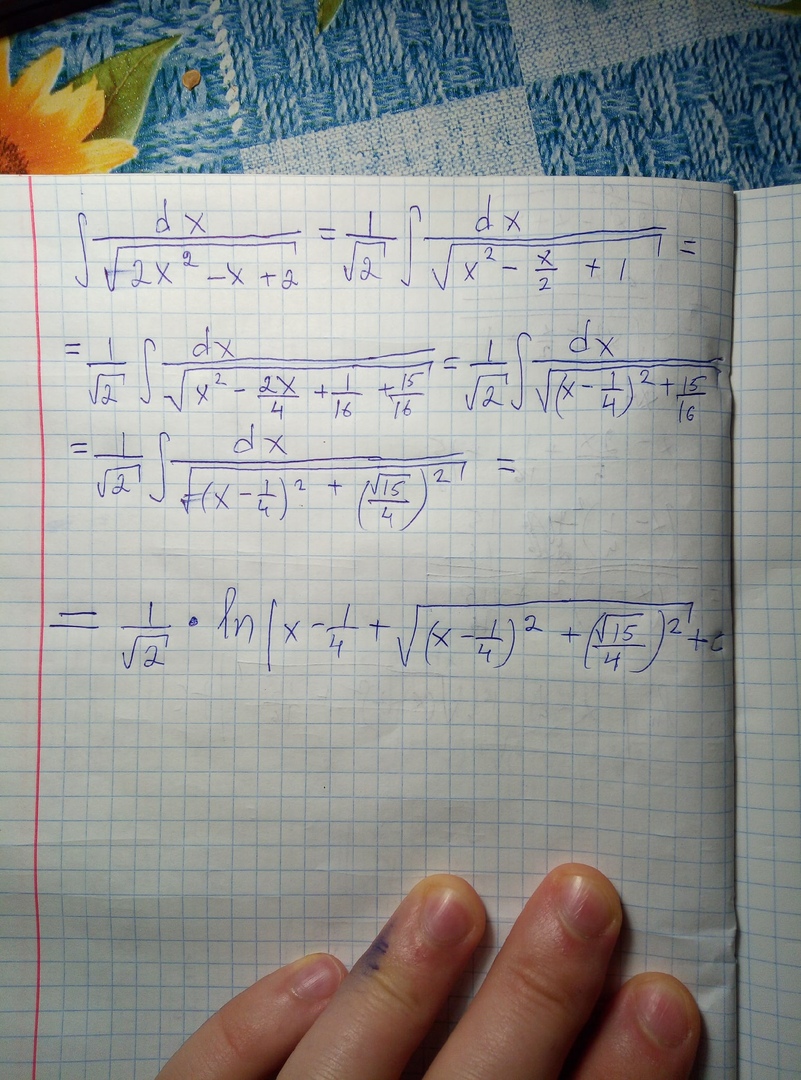 ∫ dx / √(2x² - x + 2) = 1/√2 ∫ dx / √(x² - x/2 + 1) =
= 1/√2 ∫ dx / √(x² - 2x/4 + 1/16 + 15/16) = 1/√2 ∫ dx / √((x - 1/4)² + 15/16)
= 1/√2 ∫ dx / √((x - 1/4)² + (√15/4)²) =
= 1/√2 · ln |x - 1/4 + √((x - 1/4)² + (√15/4)²) + c